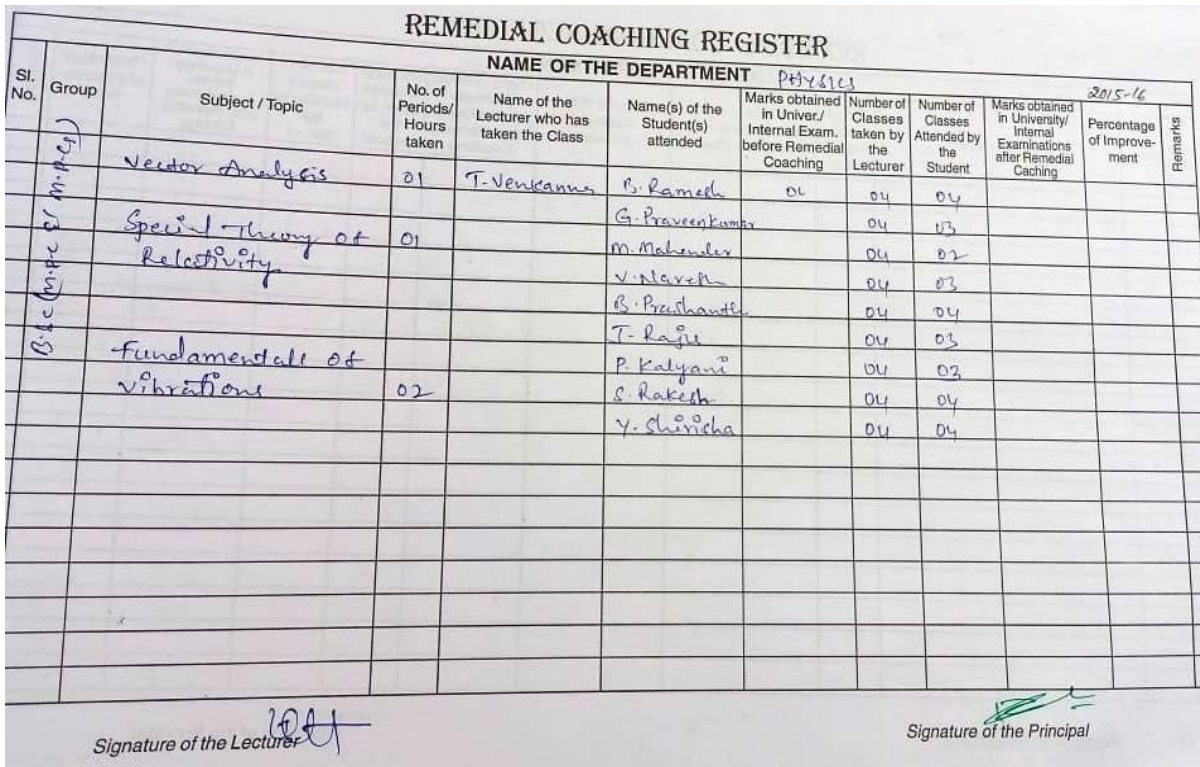 REMEDIAL COACHING REGISTER
NAME OF THE DEPARTMENT Physics
2015-16
Sl. No.
Group
Subject / Topic
No. of Periods/ Hours taken
Name of the Lecturer who has taken the Class
Name(s) of the Student(s) attended
Marks obtained in Univer./ Internal Exam. before Remedial Coaching
Number of Classes taken by the Lecturer
Number of Classes Attended by the Student
Marks obtained in University/ Internal Examinations after Remedial Caching
Percentage of Improve-ment
Remarks
B.Sc (M.P.C & M.P.Cs)
Vector Analysis 01 T. Venkanna B. Ramesh 04 04
G. Praveen kumar 04 03
Special Theory of 01 M. Mahender 04 02
Relativity V. Naresh 04 03
B. Prashanth 04 04
T. Raju 04 03
Fundamentals of P. Kalyani 04 03
vibrations 02 S. Rakesh 04 04
Y. Shirisha 04 04
Signature of the Lecturer
Signature of the Principal